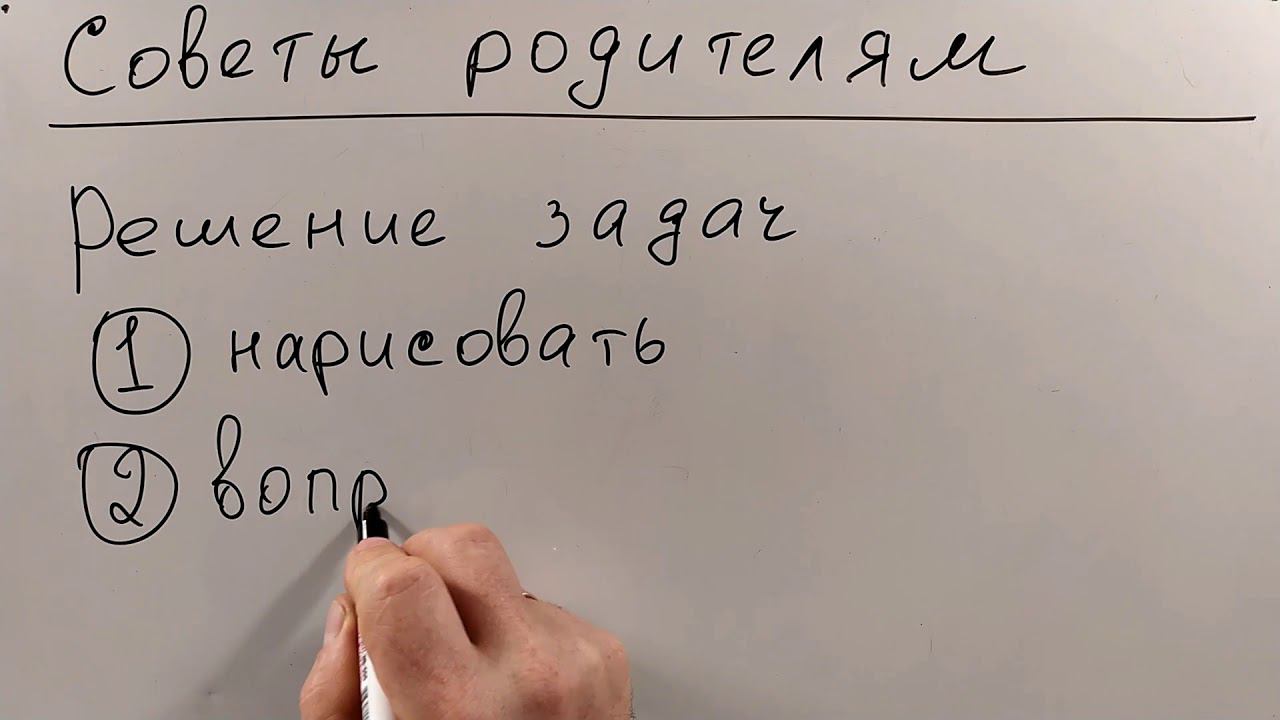 Советы родителям
Решение задач
1 нарисовать
2 вопр